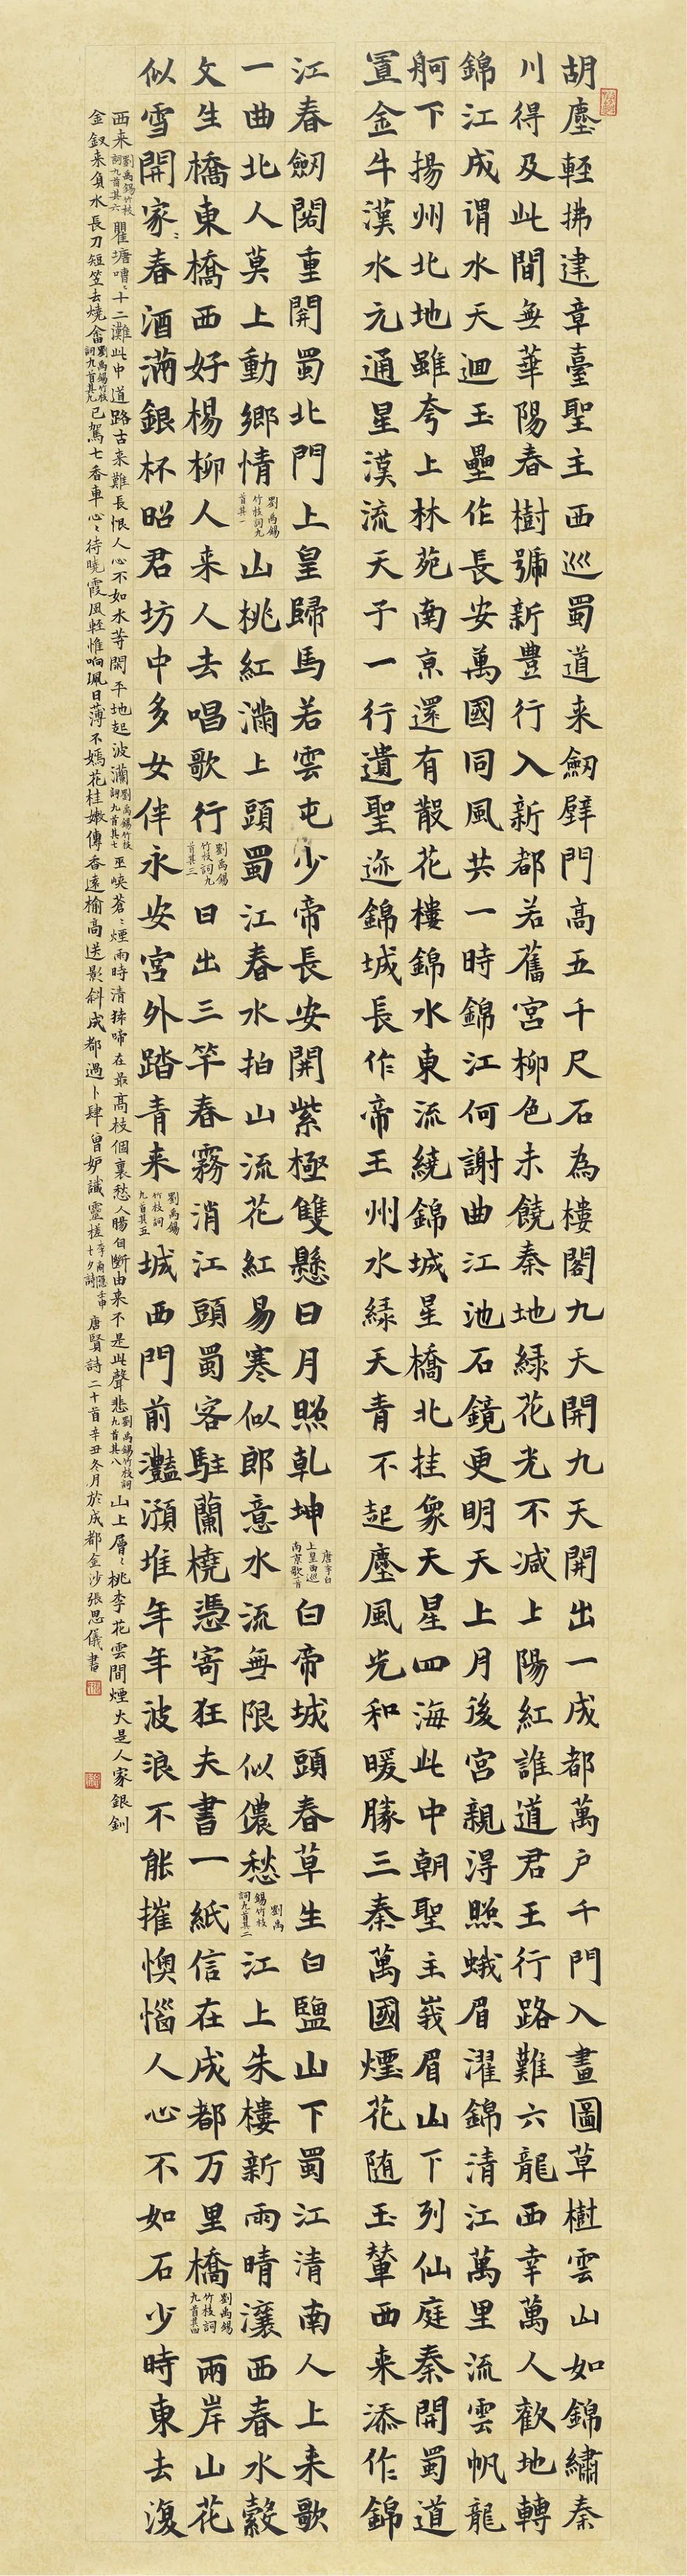 胡塵輕拂建章臺聖主西巡蜀道来劒壁門高五千尺石為樓閣九天開九天開出一成都萬户千門入畫圖草樹雲山如錦繡秦
川得及此間無華陽春樹號新豐行入新都若舊宮柳色未饒秦地緑花光不減上陽紅誰道君王行路難六龍西幸萬人歡地轉
錦江成渭水天迴玉壘作長安萬國同風共一時錦江何謝曲江池石鏡更明天上月後宮親得照蛾眉濯錦清江萬里流雲帆龍
舸下揚州北地雖夸上林苑南京還有散花樓錦水東流繞錦城星橋北挂象天星四海此中朝聖主峩眉山下列仙庭秦開蜀道
置金牛漢水元通星漢流天子一行遺聖迹錦城長作帝王州水緑天青不起塵風光和暖勝三秦萬國煙花随玉輦西来添作錦
江春劒閣重開蜀北門上皇歸馬若雲屯少帝長安開紫極雙懸日月照乾坤唐李白上皇西巡南京歌十首白帝城頭春草生白鹽山下蜀江清南人上来歌
一曲北人莫上動鄉情劉禹錫竹枝詞九首其一山桃紅滿上頭蜀江春水拍山流花紅易寒似郎意水流無限似儂愁劉禹錫竹枝詞九首其二江上朱樓新雨晴瀼西春水縠
文生橋東橋西好楊柳人来人去唱歌行劉禹錫竹枝詞九首其三日出三竿春霧消江頭蜀客駐蘭橈憑寄狂夫書一紙信在成都万里橋劉禹錫竹枝詞九首其四兩岸山花
似雪開家〻春酒滿銀杯昭君坊中多女伴永安宮外踏青来劉禹錫竹枝詞九首其五城西門前灩澦堆年年波浪不能摧懊惱人心不如石少時東去復
西来劉禹錫竹枝詞九首其六瞿塘嘈〻十二灘此中道路古来難長恨人心不如水等閑平地起波瀾劉禹錫竹枝詞九首其七巫峽蒼〻煙雨時清猿啼在最高枝個裏愁人腸自斷由来不是此聲悲劉禹錫竹枝詞九首其八山上層〻桃李花雲間煙火是人家銀釧
金釵来負水長刀短笠去燒畲劉禹錫竹枝詞九首其九已駕七香車心〻待曉霞風輕惟响珮日薄不嫣花桂嫩傳香遠榆高送影斜成都過卜肆曾妒識靈槎李商隱壬申七夕詩唐賢詩二十首辛丑冬月於成都金沙張思儀書